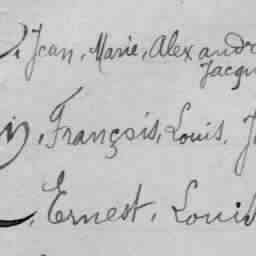 Jean, Marie, Alexandre
Jacqu
François, Louis, J
Ernest, Louis